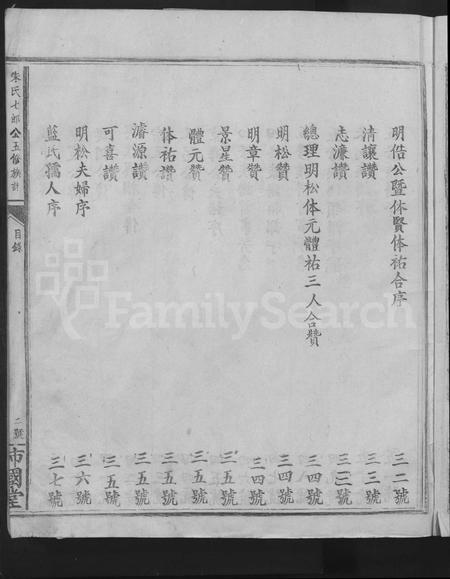 明俈公暨休賢体祐合序 三二號
清讓讚 三三號
志濂讚 三三號
總理明松体元體祐三人合贊 三四號
明松贊 三四號
明章贊 三四號
景星贊 三五號
體元贊 三五號
体祐讚 三五號
濬源讚 三五號
可喜讚 三五號
明松夫婦序 三六號
藍氏孺人序 三七號
朱氏七郎公五脩族譜
目錄
二號
市國堂
FamilySearch